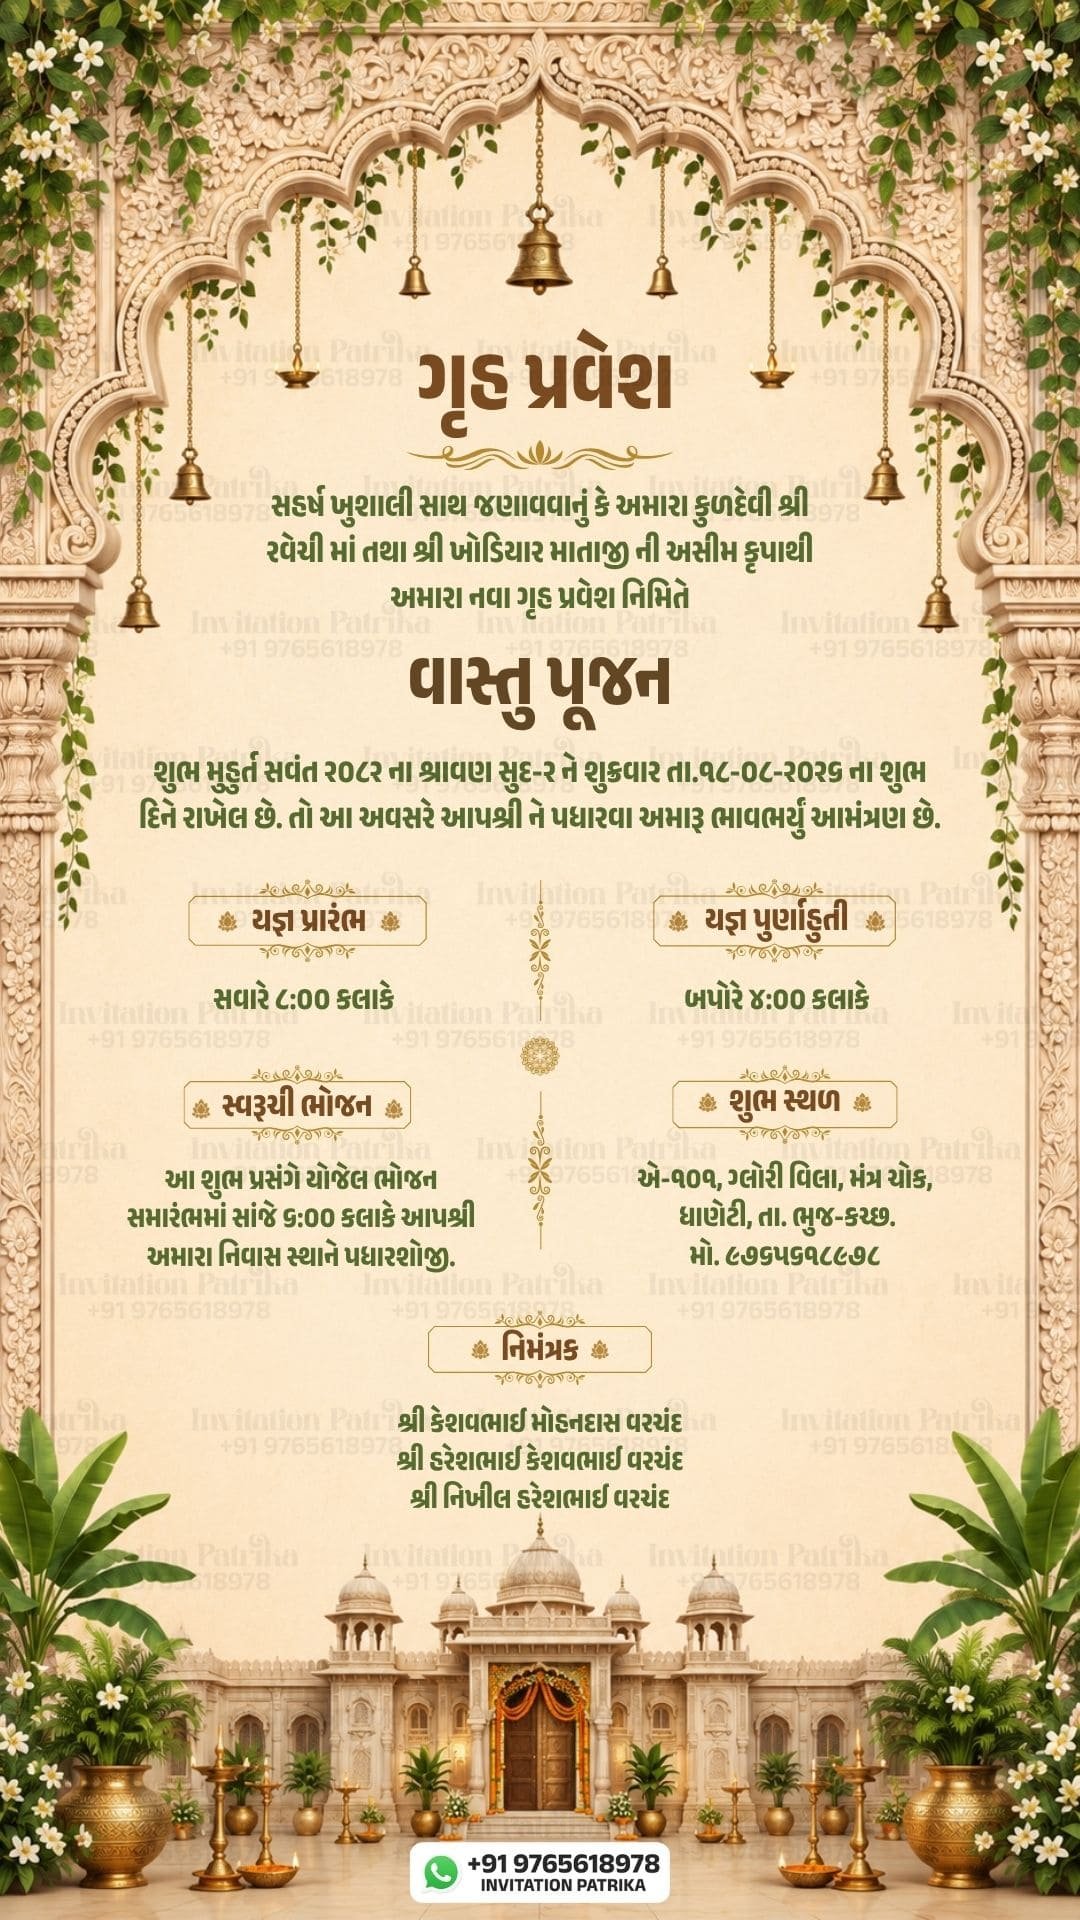 ગૃહ પ્રવેશ
સહર્ષ ખુશાલી સાથ જણાવવાનું કે અમારા કુળદેવી શ્રી
રવેચી માં તથા શ્રી ખોડિયાર માતાજી ની અસીમ કૃપાથી
અમારા નવા ગૃહ પ્રવેશ નિમિતે
વાસ્તુ પૂજન
શુભ મુહુર્ત સવંત ૨૦૮૨ ના શ્રાવણ સુદ-૨ ને શુક્રવાર તા.૧૮-૦૮-૨૦૨૬ ના શુભ
દિને રાખેલ છે. તો આ અવસરે આપશ્રી ને પધારવા અમારૂ ભાવભર્યું આમંત્રણ છે.
યજ્ઞ પ્રારંભ
સવારે ૮:૦૦ કલાકે
યજ્ઞ પુર્ણાહુતી
બપોરે ૪:૦૦ કલાકે
સ્વરૂચી ભોજન
આ શુભ પ્રસંગે યોજેલ ભોજન
સમારંભમાં સાંજે ૬:૦૦ કલાકે આપશ્રી
અમારા નિવાસ સ્થાને પધારશોજી.
શુભ સ્થળ
એ-૧૦૧, ગ્લોરી વિલા, મંત્ર ચોક,
ધાણેટી, તા. ભુજ-કચ્છ.
મો. ૯૭૬૫૬૧૮૯૭૮
નિમંત્રક
શ્રી કેશવભાઈ મોહનદાસ વરચંદ
શ્રી હરેશભાઈ કેશવભાઈ વરચંદ
શ્રી નિખીલ હરેશભાઈ વરચંદ
+91 9765618978
INVITATION PATRIKA
Invitation Patrika
+91 9765618978